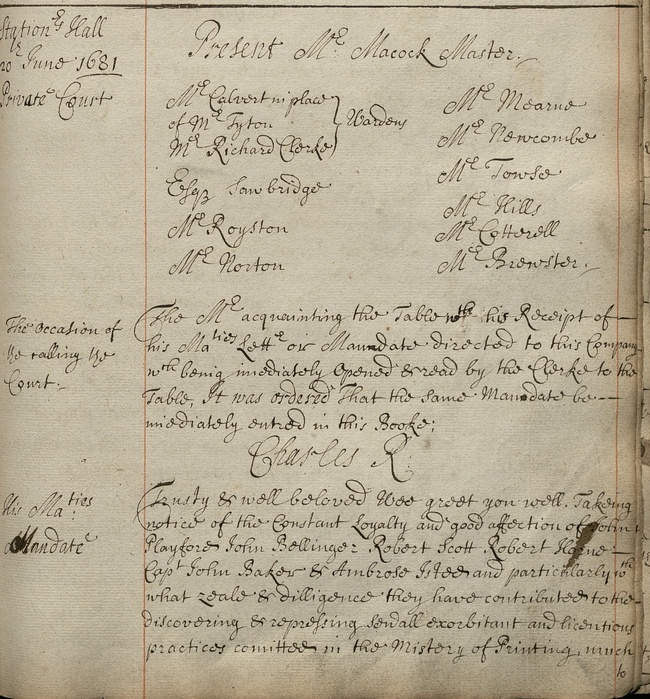 Station:rs Hall
20th June 1681
Private Court
Present Mr. Macock Master:
Mr Calvert in place
of Mr Tyton
Mr Richard Clerke
Wardens
Esqr Sawbridge
Mr Royston
Mr Norton
Mr Mearne
Mr Newcombe
Mr Towse
Mr Hills
Mr Cotterell
Mr Brewster:
The occasion of
the calling the
Court:
The Mr acquainting the Table wth his Receipt of
his Maties Lettr or Mandate directed to this Company
wch being imediately Opened & read by the Clerke to the
Table, It was ordered That the same Mandate be
imediately entred in this Booke;
Charles R:
His Ma:ties
Mandate
Trusty & well beloved Wee greet you well. Takeing
notice of the Constant Loyalty and good affection of John
Playford John Bellinger Robert Scott Robert Horne
Capt John Baker & Ambrose Isted and particularly wth
what zeale & dilligence they have contributed to the
discovering & repressing sevall exorbitant and licentious
practices comitted in the Mistery of Printing, much
to